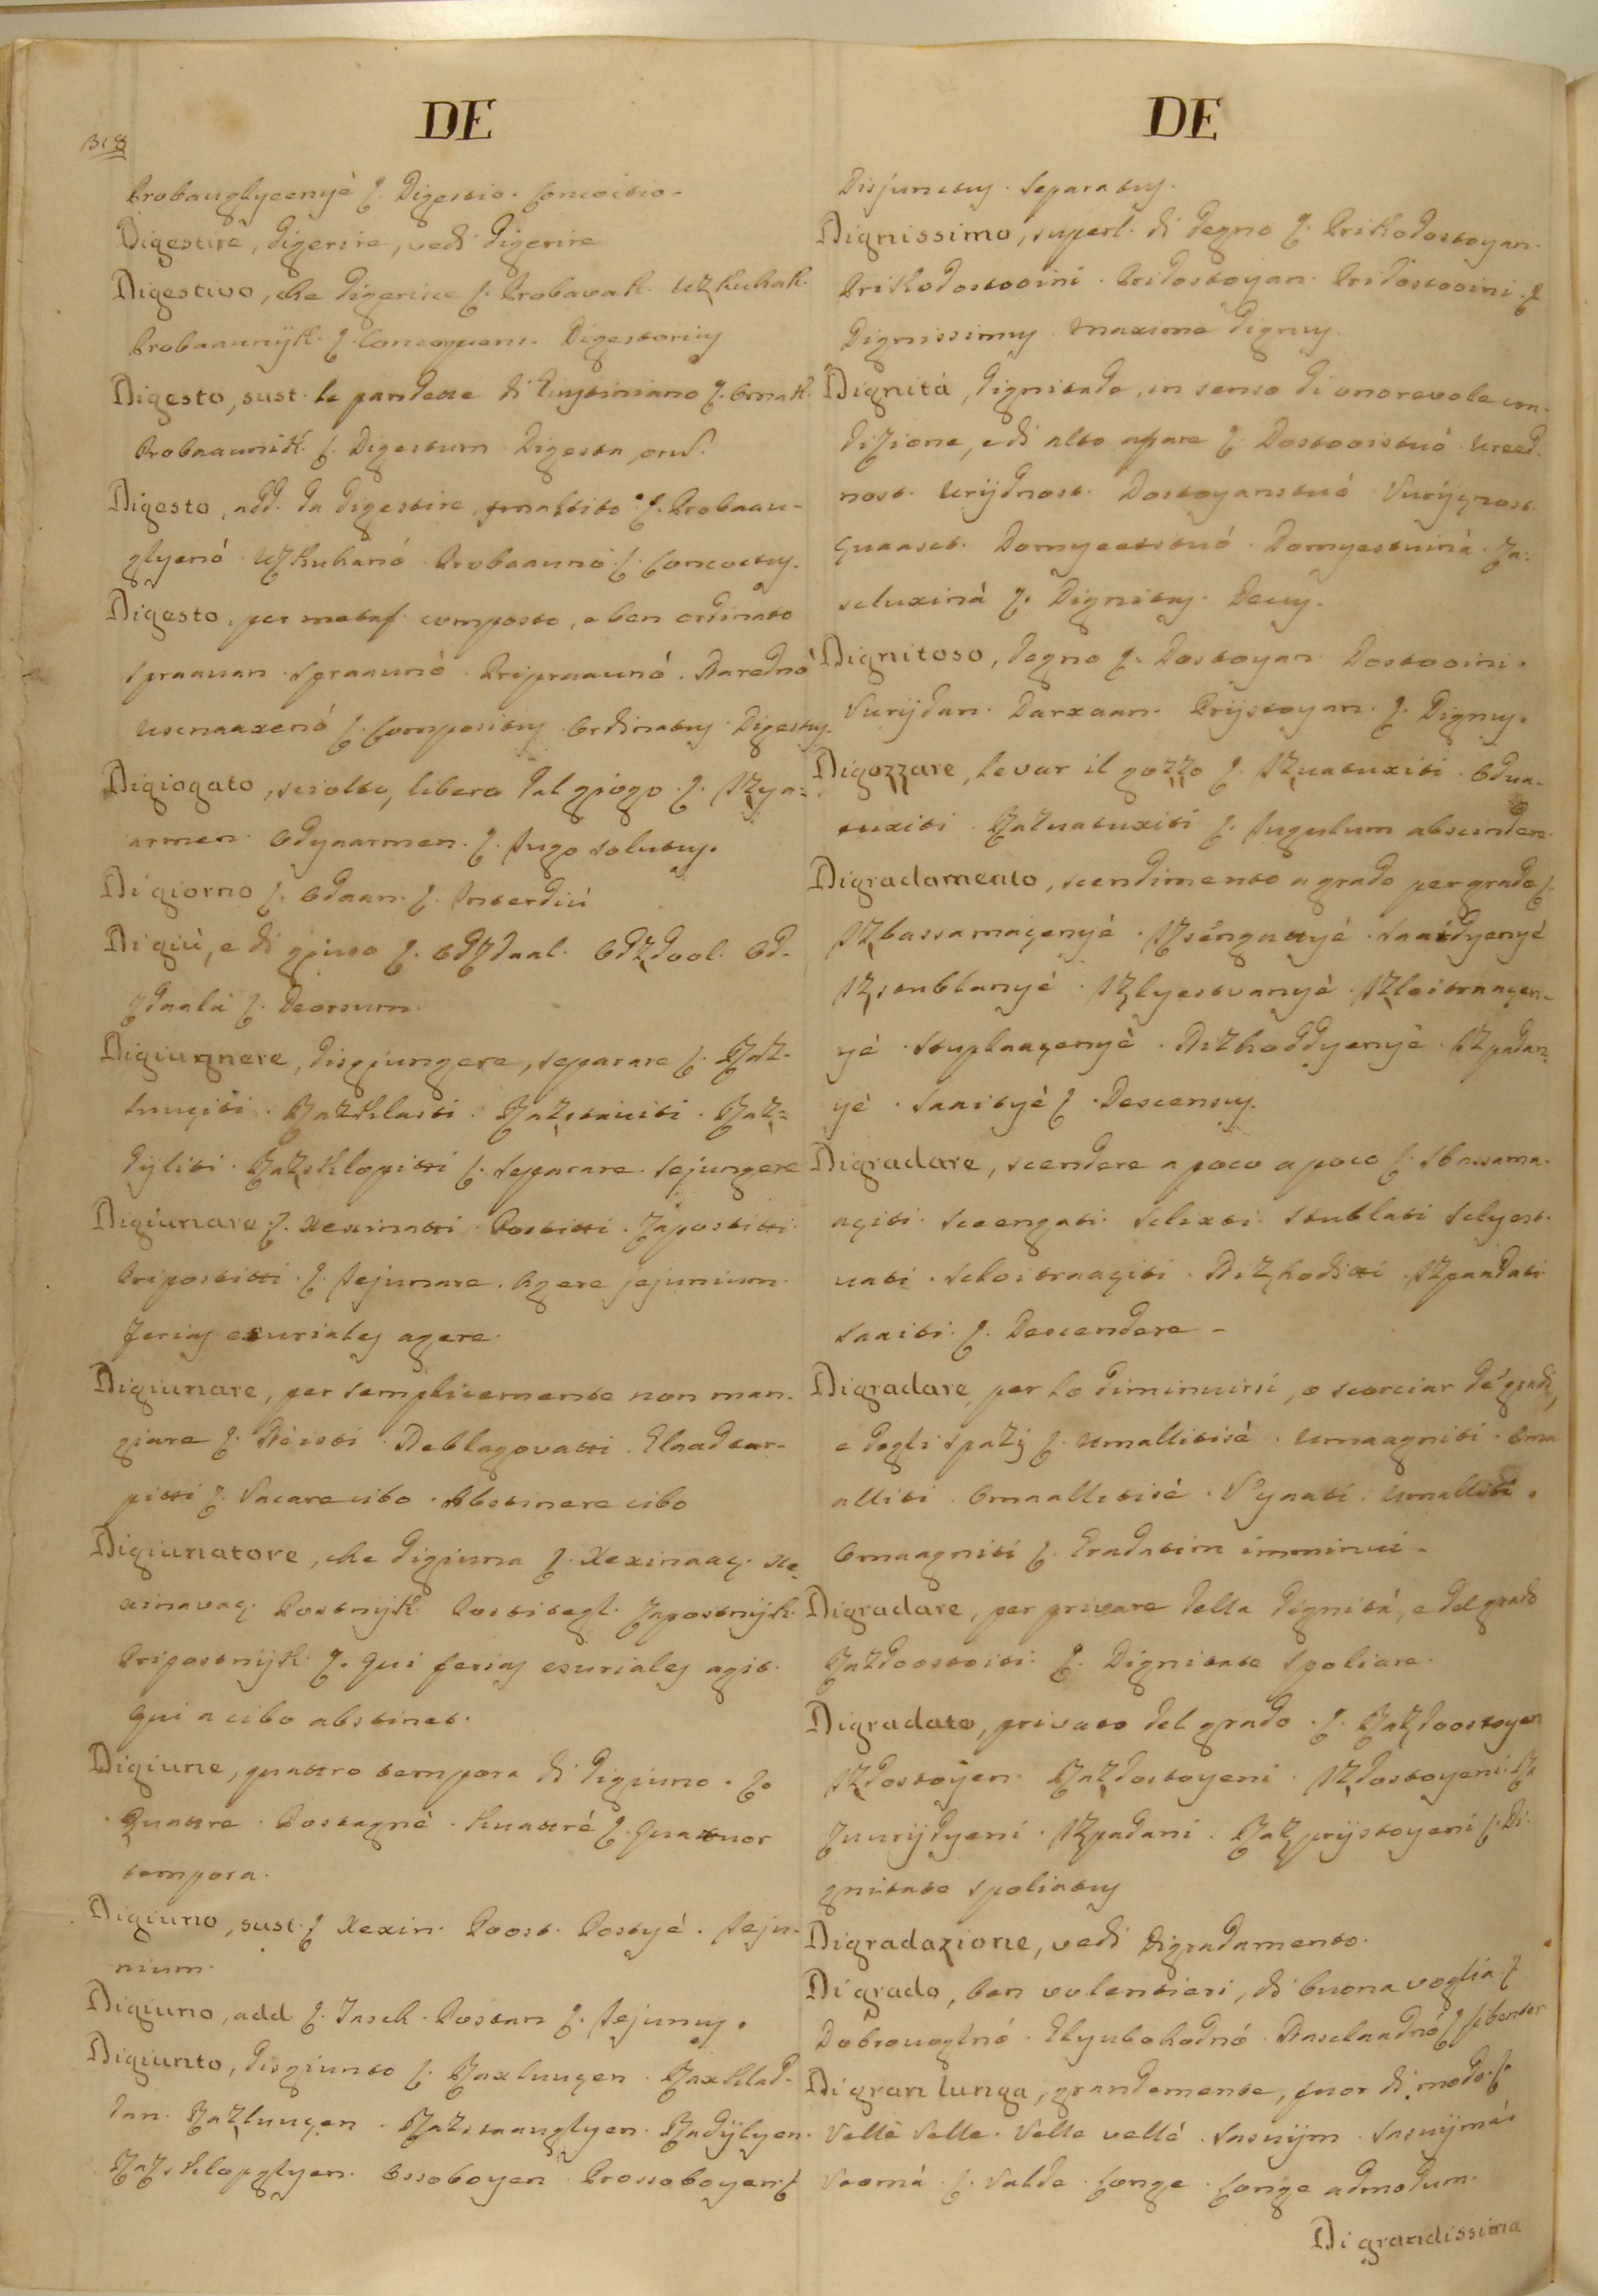 318
DE
Probauglycenyè ſ. Digestio. Concoctio.
Digestire, digerire, vedi digerire
Digestivo, che digerisce ſ. Probavak. Uzkuhak.
Probaaunijk. ſ. Concoquens. Digestorius
Digesto, sust. le pandette di Giustiniano ſ.
Probaaunik. ſ. Digestum Digesta, orum.
Digesto, add. da digestire, smaltito. ſ. Probaau-
glyenó. Uzkuhanó. Probaaunó. ſ. Concoctus.
Digesto, per metaf. composto, e ben ordinato
Spraauan. Spraaunó. Pripraaunó. Naredno
ſ. Compositus. Ordinatus. Digestus.
Digiogato, sciolto, libero dal giogo. ſ. Izya-
armen. Odyaarmen. ſ. Jugo solutus.
Di giorno ſ. Odaan. ſ. Interdiù
Di giù, e di giuso ſ. Odzdaal. Odzdool. Od-
zdaala ſ. Deorsum.
Digiugnere, disgiungere, separare ſ. Raz-
luuçiti. Razklasti. Razstaviti. Raz-
dijliti. Razsklopitti ſ. Separare. Sejungere
Digiunare ſ. Xexinatti. Postitti. Zapostitti.
Pripostitti. ſ. Jejunare. Agere jejunium.
Ferias esuriales agere.
Digiunare, per semplicemente non man-
giare ſ. Neisti. Neblagovatti. Glaadtar-
pitti ſ. Vacare cibo. Abstinere cibo
Digiunatore, che digiuna ſ. Xexinaaç. Xe-
xinavaç. Postnijk. Postitegl. Zapostnijk.
Pripostnijk. ſ. Qui ferias esuriales agit.
Qui a cibo abstinet.
Digiune, quattro tempora di digiuno. ſ.
Quattre. Postagnè. Kuattrè ſ. Quatuor
tempora.
Digiuno, sust. ſ. Xexin. Poost. Postyé. Jeju-
nium.
Digiuno, add. ſ. Tasch. Postan ſ. Jejunus.
Digiunto, disgiunto ſ. Raxluuçen. Raxklad-
dan. Razluuçen. Razstaauglyen. Radijlyen.
Razsklopglyen. Ossoboyen. Prossoboyen. ſ
DE
Disjunctus. Separatus.
Dignissimo, superl. di degno ſ. Prikodostoyan.
Prikodostooini. Pridostoyan. Pridostooini. ſ
Dignissimus. Maxime dignus.
Dignità, dignitade, in senso di onorevole con-
dizione, e di alto afare ſ. Dostooistuó. Ureed-
nost. Urijdnost. Dostoyanstuó. Vurijgnost.
Quaast. Domyeetstuó. Domyestuinà. Za-
scluxinà ſ. Dignitas. Decus.
Dignitoso, degno ſ. Dostoyan. Dostooini.
Vurijdan. Darxaan. Prijstoyan. ſ. Dignus.
Digozzare, levar il gozzo ſ. Izuatuxiti. Odua-
tuxiti. Razuatuxiti ſ. Jugulum abscindere.
Digradamento, scendimento a grado per grado ſ.
Izbassamaçenyè. Saaidyenyé
Izstublanyè. Izlyestvanyè. Izloitraaçen-
yè. Stuplaaçenyè. Nizhoddyenyè. Izpadan-
yè. Saaityè ſ. Descensus.
Digradare, scendere a poco a poco ſ. Sbassama-
açiti. Sceengati. Sclixti. Stublati. Sclyest-
uati. Scloitraaçiti. Nizhoditti. Izpaadati
Saaiti. ſ. Descendere.
Digradare, per lo diminuirsi, o scorciar de' gradi,
e degli spazj ſ. Umallitisè. Umaagniti. Oma
alliti. Omaallitisè. Umalliti.
Omaagniti ſ. Gradatim imminui.
Digradare, per privare della dignità, e del grado
Razdoostoiti ſ. Dignitate spoliare.
Digradato, privato del grado. ſ. Razdoostoyen
Izdostoyen. Razdostoyeni. Izdostoyeni.
Zuurijdyeni. Izpadani. Razprijstoyeni ſ. Di-
gnitate spoliatus
Digradazione, vedi Digradamento.
Di grado, ben volentieri, di buona voglia ſ
Dobrovoglnó. Glyubohodnó. Nasclaadnó ſ Libenter
Di gran lunga, grandemente, fuor di modo. ſ
Vellè Velle. Velle vellè. Sasuijm. Sasuijmà.
Veomà. ſ. Valde. Longe. Longe admodum.
Di grandissima